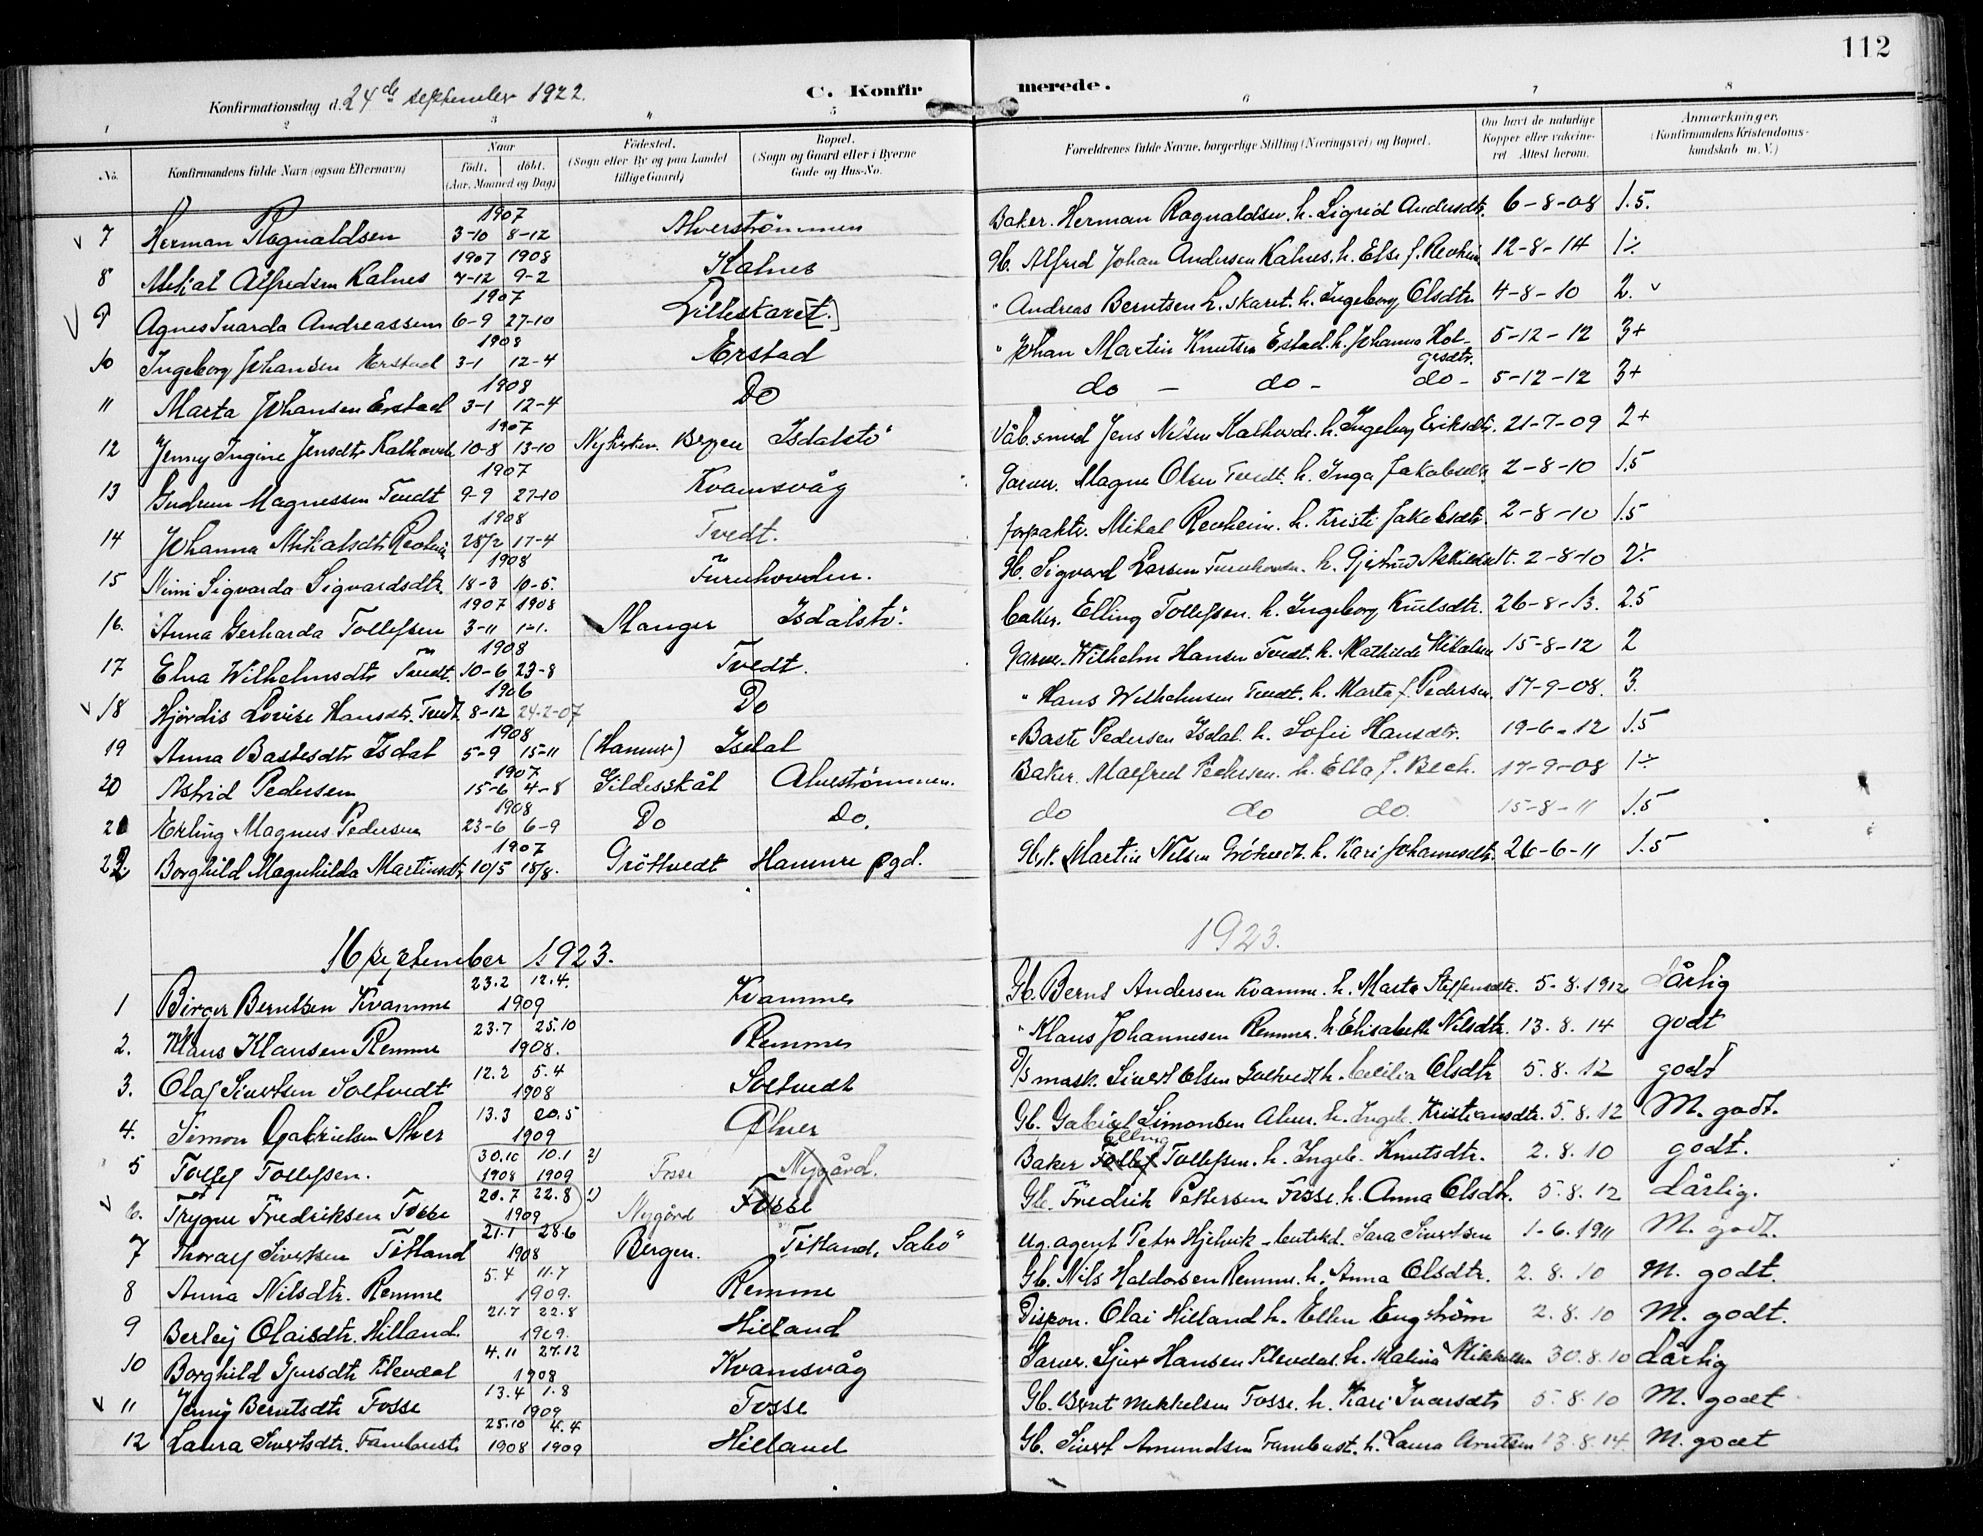 112
Konfirmationsdag d. 24de september 1922.
C. Konfirmerede.
1 2 3 4 5 6 7 8
No. Konfirmandens fulde Navn (ogsaa Efternavn)
Naar født. døbt. (Aar, Maaned og Dag)
Fødested. (Sogn eller By og paa Landet tillige Gaard)
Bopæl. (Sogn og Gaard eller i Byerne Gade og Hus-No.
Forældrenes fulde Navne, borgerlige Stilling (Næringsvei) og Bopæl.
Om havt de naturlige Kopper eller vaccineret Attest herom.
Anmærkninger. (Konfirmandens Kristendomskundskab m. V.)
7 Herman Ragnvaldsen 1907 3-10 8-12 Alverstrømmen Baker. Herman Ragnvaldsen. h. Sigrid Andersdtr. 6-8-08 1.5.
8 Mikal Alfredsen Kalnes 1907 1908 7-12 9-2 Kalnes Gb. Alfred Johan Andersen Kalnes. h. Else f. 12-8-14 1÷
9 Agnes Ivarda Andreassen 1907 6-9 27-10 Lilleskaret. " Andreas Berntsen L.skaret. h. Ingeborg Olsdtr 4-8-10 2.
10 Ingeborg Johansen Erstad 1908 3-1 12-4 Erstad " Johan Martin Knutsen Erstad. h. Johanna Holgersdtr. 5-12-12 3+
11 Marta Johansen Erstad 1908 3-1 12-4 Do do - do - do - 5-12-12 3+
12 Jenny Ingine Jensdtr 1907 10-8 13-10 Nykirken. Bergen Isdalstø Våb.smed Jens Nilsen h. Ingeborg Eriksdtr. 21-7-09 2+
13 Gudrun Magnessen Tvedt 1907 9-9 27-10 Kvamsvåg Garver. Magne Olsen Tvedt. h. Inga Jakobsdtr 2-8-10 1.5
14 Johanna Mikalsdtr 1908 28/2 17-4 Tvedt. Forpakter. Mikal h. Kristi Jakobsdtr. 2-8-10 1.5
15 Mimi Sigvarda Sigvardsdtr 1908 18-3 10-5. Furuhovden. Gb. Sigvard Larsen Furuhovden. h. Gjertrud 2-8-10 2÷
16. Anna Gerharda Tollefsen 1907 1908 3-11 1-1. Manger Isdalstø. Baker. Elling Tollefsen. h. Ingeborg Knutsdtr. 26-8-13. 2.5
17 Elna Wilhelmsdtr Tvedt 1908 10-6 23-8 Tvedt. Garver. Wilhelm Hansen Tvedt. h. Mathilde Mikalsen 15-8-12 2
18 Hjørdis Lovise Hansdtr. Tvedt 1906 8-12 24-2-07 Do " Hans Wilhelmsen Tvedt. h. Marta f. Pedersen. 17-9-08. 3.
19 Anna Bastesdtr Isdal 1908 5-9 15-11 (Hamre) Isdal " Baste Pedersen Isdal. h. Sofie Hansdtr. 19-6-12 1.5
20 Astrid Pedersen 1907 15-6 4-8 Gildesskål Alverstrømmen. Baker. Malfred Pedersen. h. Ella f. Bech. 17-9-08 1÷
21 Erling Magnus Pedersen 1908 23-6 6-9 Do Do. do do do. 15-8-11 1.5
22. Borghild Magnhilda Martinsdtr 1907 10/5 18/8. Grøttvedt Hamre pgd. Martin Nilsen Grøtvedt. h. Kari Johannesdtr. 26-6-11 1.5
16 september 1923. 1923.
1 Birger Berntsen Kvamme 23.2 12.4. 1909 Kvamme Gb. Bernt Andersen Kvamme. h. Marta Steffensdtr. 5-8.1912 dårlig
2. Klaus Klausen Remme 23.7 25.10 1908. Remme " Klaus Johannesen Remme. h. Elisabeth Nilsdtr. 13.8.14 godt
3. Olaf Sivertsen Soltvedt 12.2 5.4 1908 Soltvedt D/S mask. Sivert Olsen Soltvedt h. Cecilia Olsdtr 5.8.12 godt
4. Simon Gabrielsen Alver 13.3 20.5 1909 Alver Gb. Gabriel Simonsen Alver. h. Ingeb. Kristiansdtr. 5.8.12 M. godt.
5 Tollef Tollefsen. 30.10 10.1 1908 1909 2) Fosse Nygård. Baker Tollef Elling Tollefsen. h. Ingeb. Knutsdtr. 2.8.10 godt.
6. Trygve Fredriksen Fosse 20.7 22.8 1909 1) Nygård Fosse Gb. Fredrik Pettersen Fosse. h. Anna Olsdtr. 5.8.12 dårlig.
7 Thoralf Sivertsen Titland 21.1 28.6 1908 Bergen. Titland, Salbø Ug. agent Peter Hjelvik - Sara Sivertsen 1-6.1911 M. godt.
8 Anna Nilsdtr. Remme 5.4 11.7 1909. Remme Gb. Nils Haldorsen Remme. h. Anna Olsdtr. 2.8.10 M. godt.
9 Berley Olaisdtr. Hilland. 21.7 22.8 1909. Hilland Dispon. Olai Hilland h. Ellen Engstrøm 2.8.10 M. godt.
10 Borghild Sjursdtr Klevdal 4.11 27.12 1908 Kvamsvåg Garver. Sjur Hansen Klevdal. h. Malina Mikkelsen 30.8.10 dårlig
11 Jenny Berntsdtr Fosse 13.4 1.8 1909 Fosse Gb. Bernt Mikkelsen Fosse. h. Kari Ivarsdtr 5.8.10 M. godt
12 Laura Sivertsdtr. 25.10 4.4 1908 1909 Hilland Gb. Sivert Amundsen h. Laura 13.8.14. M. godt